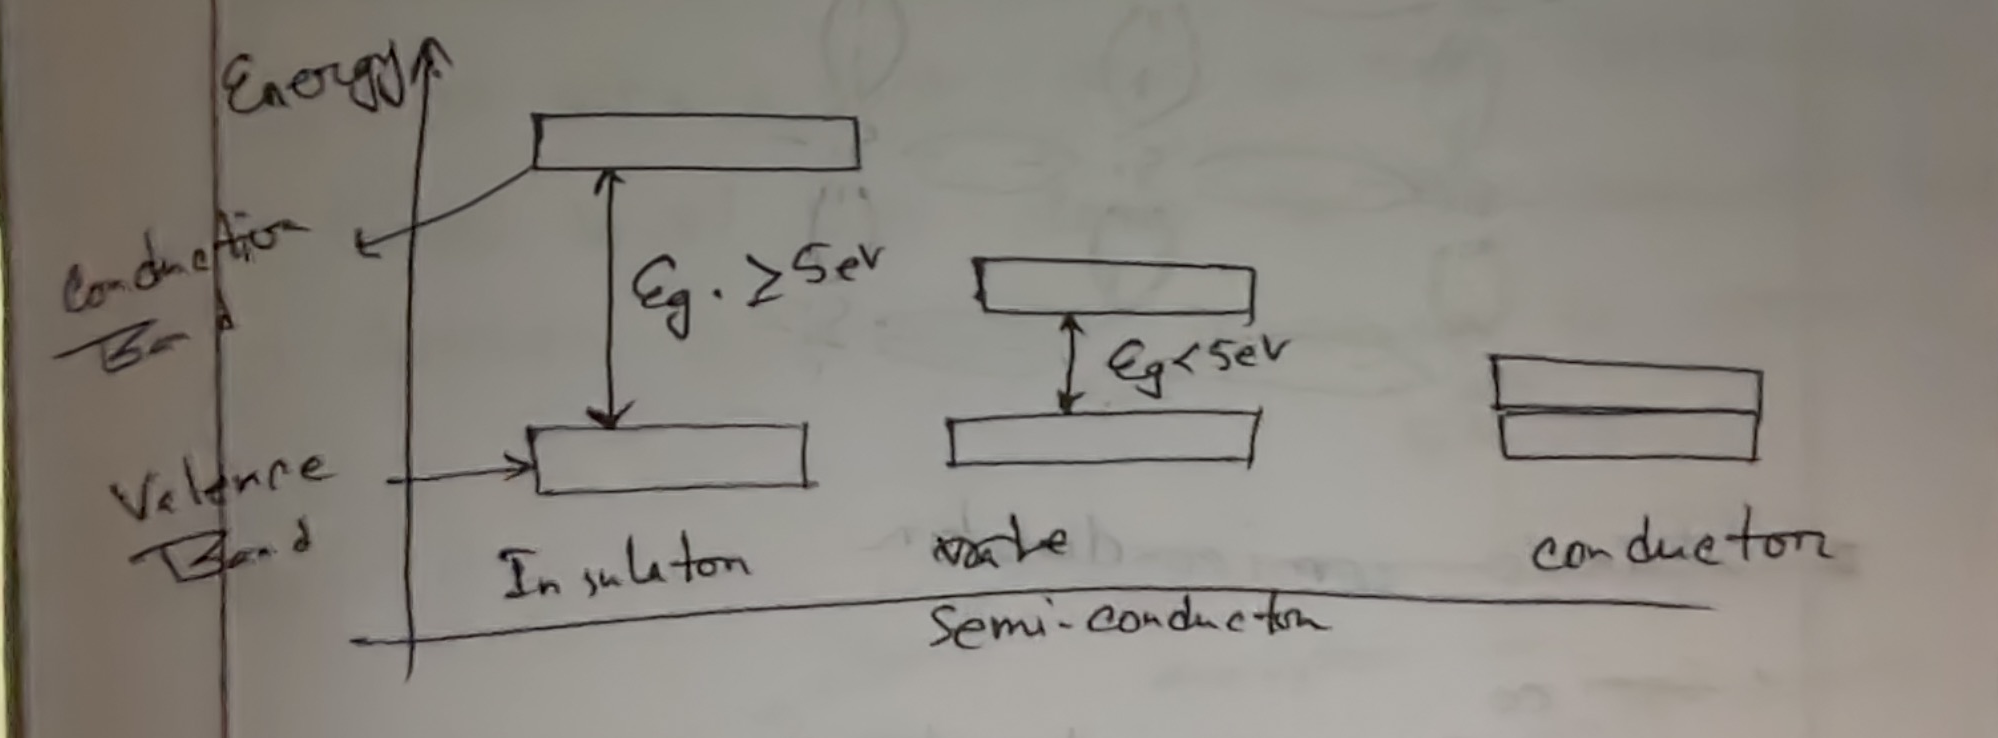 Energy
Eg. ≥ 5ev
Conduction
Band
Eg < 5ev
Valence
Band
Insulator
conductor
Semi-conductor